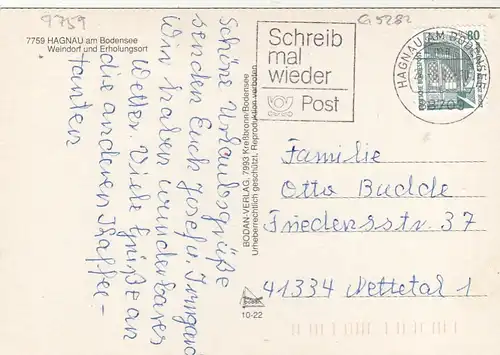 9759
G 5282
7759 HAGNAU am Bodensee
Weindorf und Erholungsort
Schöne Urlaubsgrüße
senden Euch Josef u. Irmgard
Wir haben wunderbares
Wetter. Viele Grüße an
die anderen Kaffee-
tanten
BODAN-VERLAG, 7993 Kreßbronn/Bodensee
Urheberrechtlich geschützt. Reproduktion verboten
10-22
Schreib
mal
wieder
Post
HAGNAU AM BODENSEE
88709
80
Familie
Otto Budde
Friedensstr. 37
41334 Nettetal 1